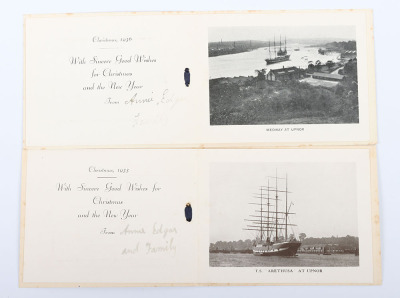 Christmas, 1936
With Sincere Good Wishes
for Christmas
and the New Year
From Annie Edgar
Family
MEDWAY AT UPNOR
Christmas, 1933
With Sincere Good Wishes for
Christmas
and the New Year
From Annie Edgar
and Family
T.S. "ARETHUSA" AT UPNOR